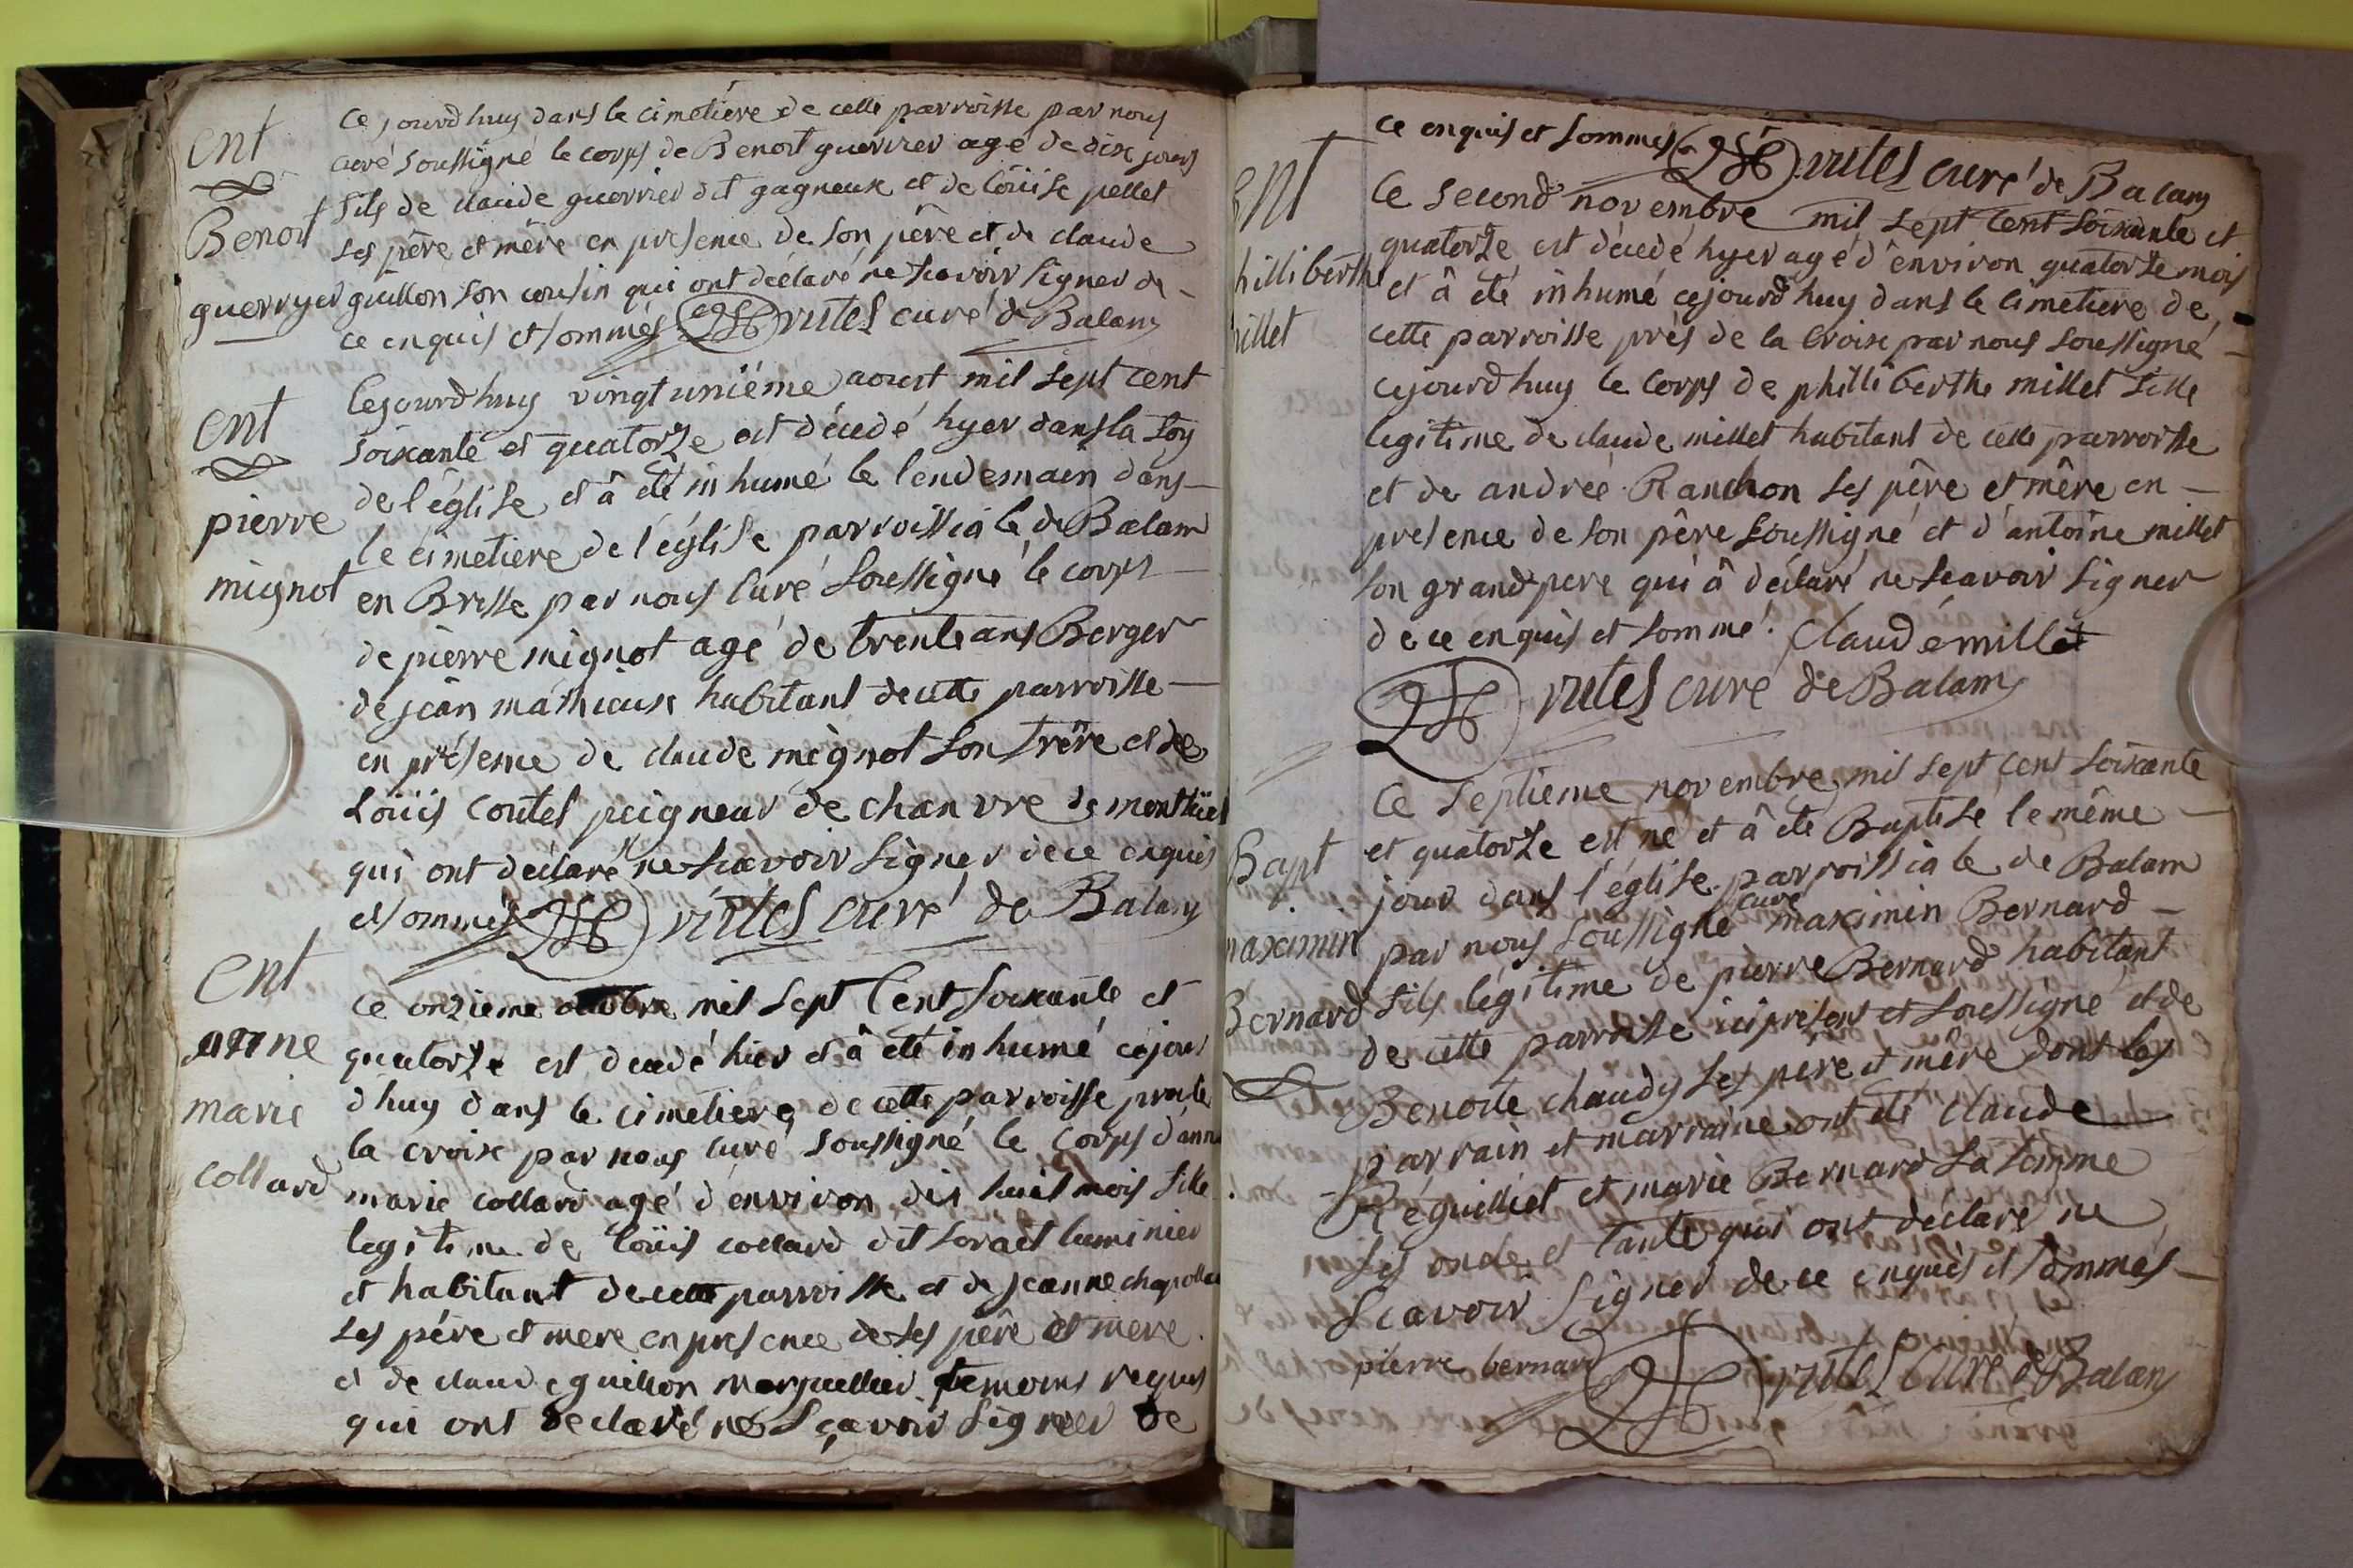 Ent
Benoit
guerryer
cejourdhuy dans le cimetiere de cette parroisse par nous
curé soussigné le corps de Benoit guerrier agé de dix jours
fils de claude guerrier dit gagneux et de loüise pellet
ses pêre et mêre en presence de son pêre et de claude
guillon son cousin qui ont déclaré ne scavoir signer de
ce enquis et sommés vutes curé de Balany
Ent
pierre
mignot
Cejourdhuy vingt uniéme aoust mil sept cent
soixante et quatorze est décedé hyer dans la foy
de l'église et â été inhumé le lendemain dans
le cimetiere de l'église parroissiale de Balam
en Bresse par nous Curé soussigné le corps
de pierre mignot agé de trente ans Berger
de jean mathieux habitant de cette parroisse
en présence de claude mignot son frêre et de
Loüis coutel peigneur de chanvre de montlüel
qui ont déclaré ne scavoir signer de ce enquis
et sommés vutes curé de Balany
Ent
anne
marie
collard
Ce onzieme octobre mil sept Cent soixante et
quatorze est decedé hier et â été inhumé cejour
dhuy dans le cimetiere de cette parroisse proche
la croix par nous curé soussigné le corps d'anne
marie collard agé d'environ dix huit mois fille
legitime de loüis collard dit luminier
et habitant de cette parroisse et de jeanne
ses pére et mere en presence de ses pêre et mere
et de claude guillon marguellier temoins requis
qui ont declaré ne sçavoir signer de
ce enquis et sommés vutes curé de Balany
Ent
hilliberthe
millet
Ce second novembre mil sept Cent soixante et
quatorze est décedé hyer agé d'environ quatorze mois
et â été inhumé cejourdhuy dans le cimetiere de
cette parroisse prés de la Croix par nous soussigné
cejourdhuy le corps de philliberthe millet fille
legitime de claude millet habitant de cette parroisse
et de andrée Ranchon ses pêre et mêre en
presence de son pêre soussigné et d'antoine millet
son grand pere qui â déclaré ne scavoir signer
de ce enquis et sommé. Claude millet
vutes curé de Balany
Bapt
maximin
Bernard
Ce septieme novembre mil sept cent soixante
et quatorze est né et â été Baptisé le même
jour dans l'église parroissiale de Balam
curé
par nous soussigné maximin Bernard
fils légitime de pierre Bernard habitant
de cette parroisse ici présent et soussigné et de
Benoite chaudy ses pere et mêre dont les
parrain et marraine ont été claude
Réguilliet et marie Bernard sa femme
ses oncle et tante qui ont déclaré ne
scavoir signer de ce enquis et sommés
pierre bernard vutes Curé de Balany